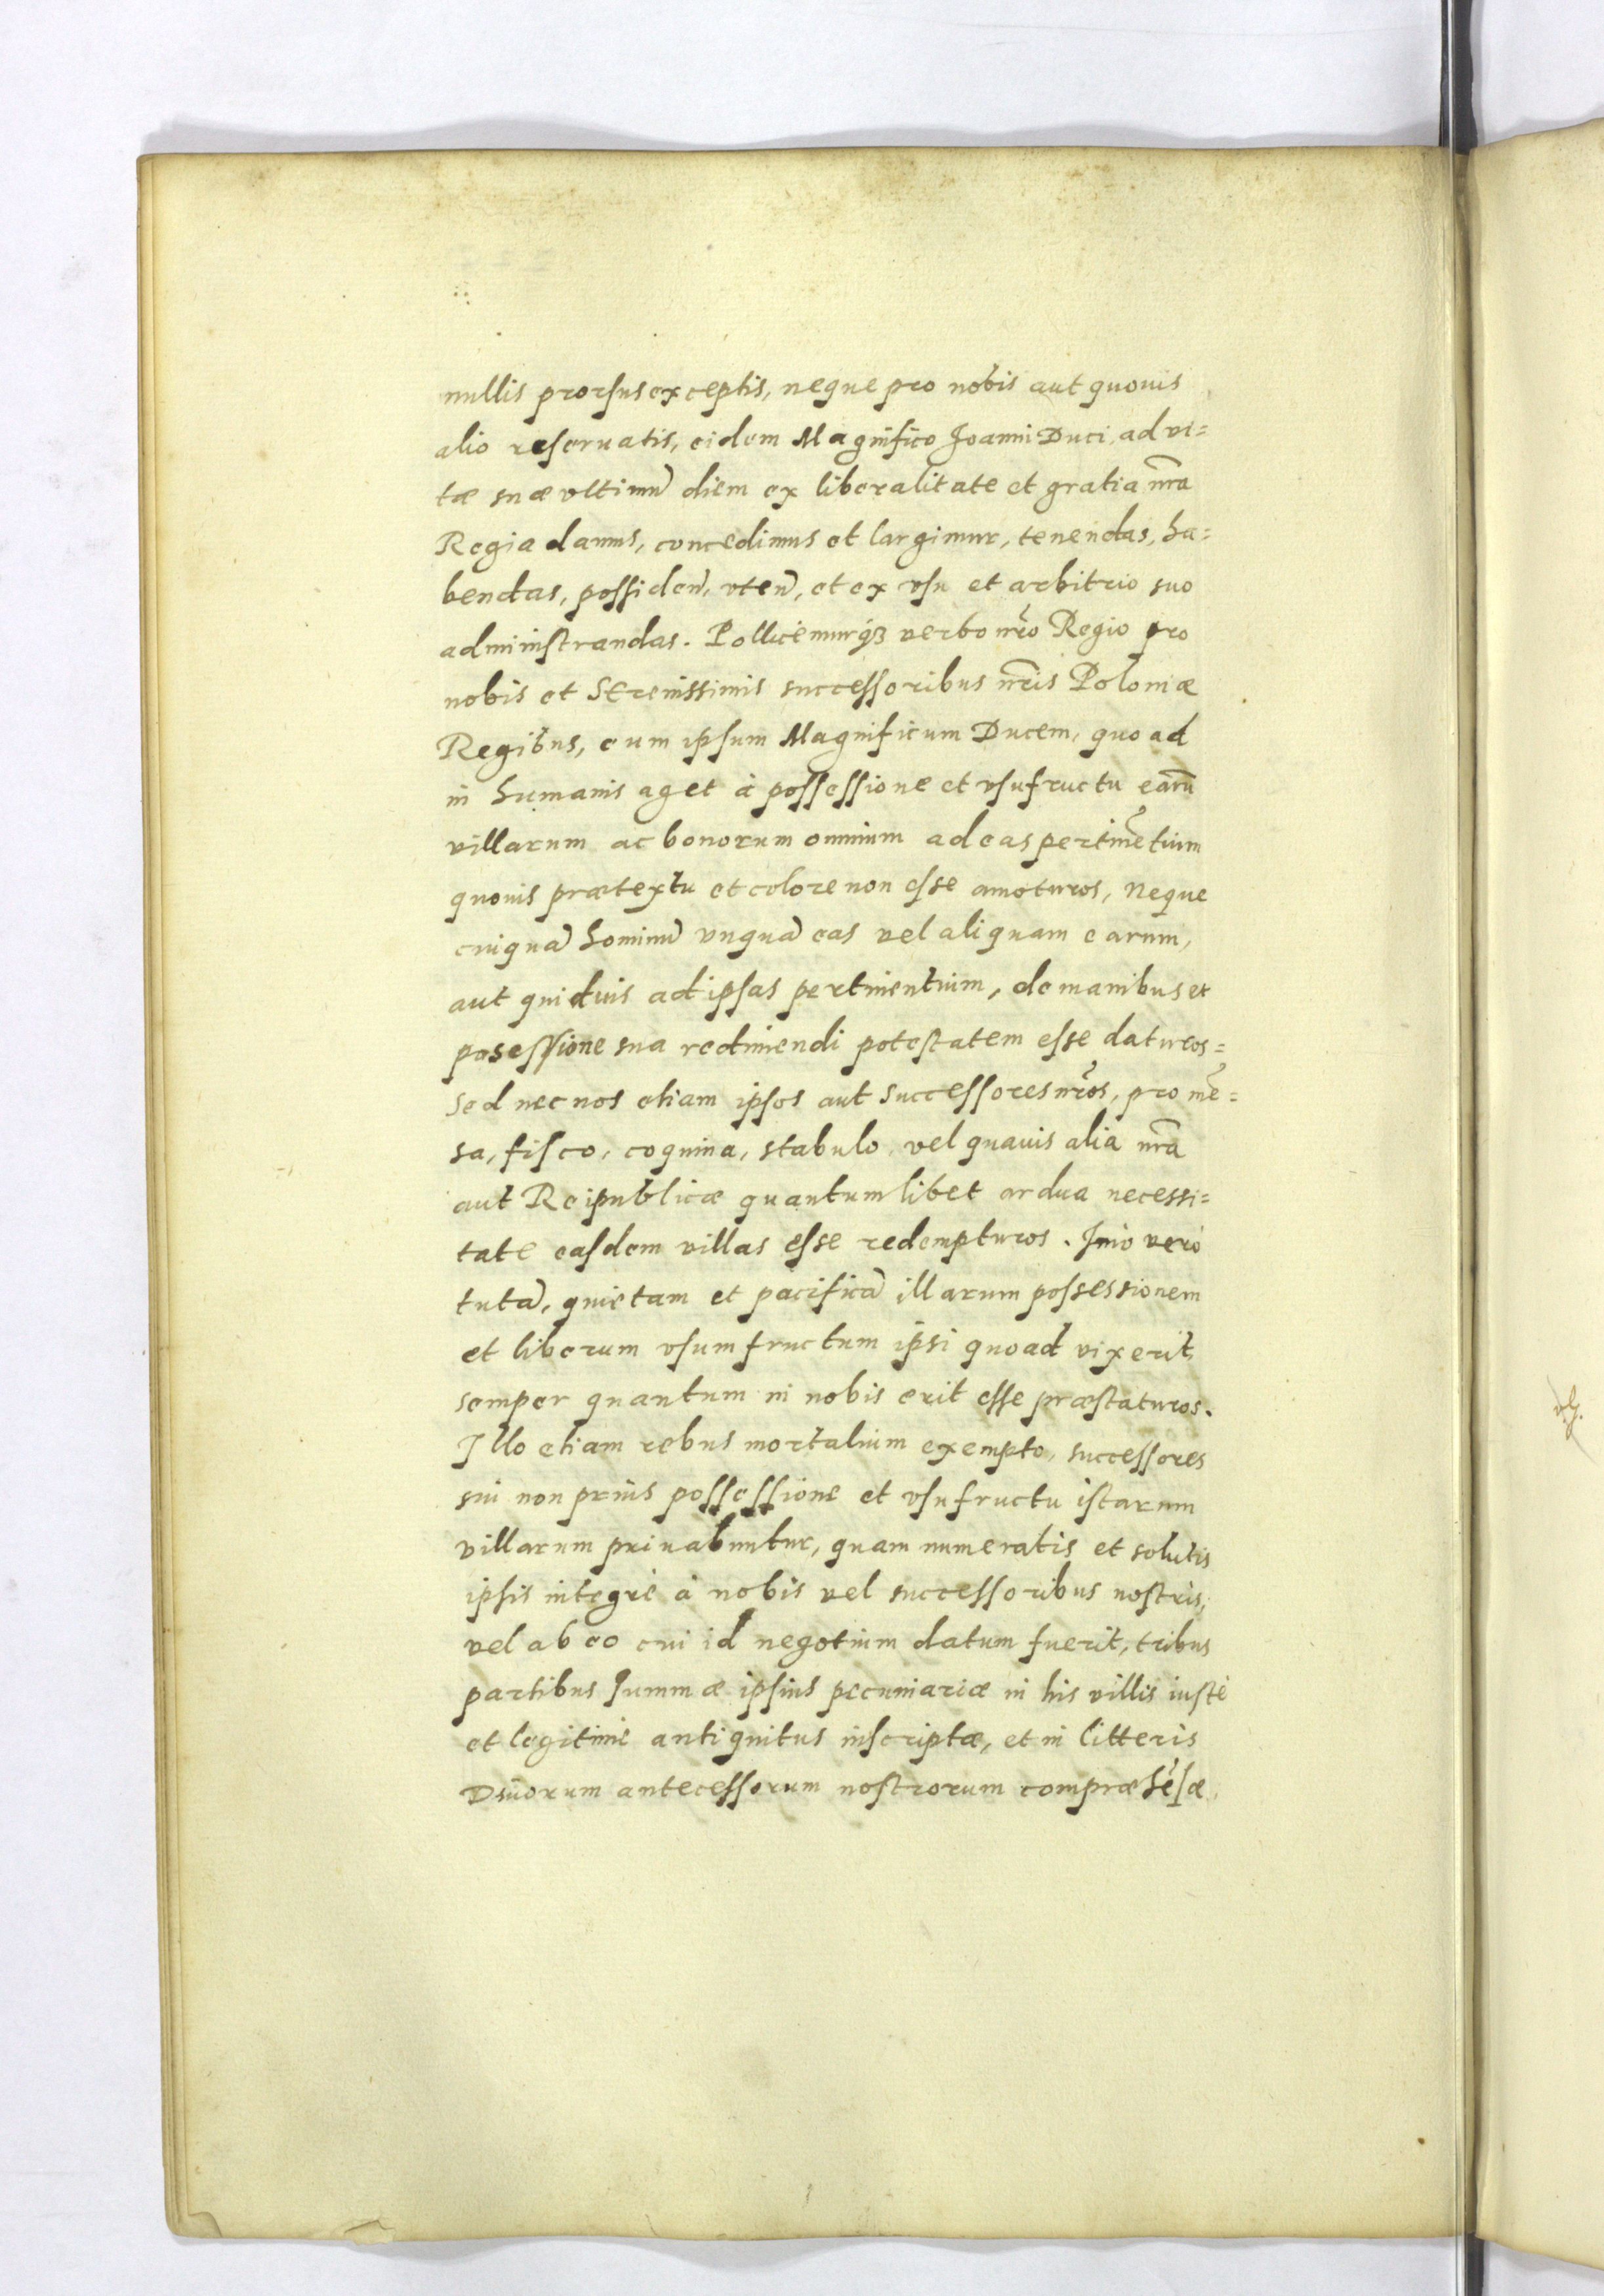 nullis prorsus exceptis, neque pro nobis aut quouis
alio reseruatis, eidem Magnifico Joanni Duci, ad vi=
tæ suæ vltimũ diem ex liberalitate et gratia nr̃a
Regia damus, concedimus et largimur, tenendas, ha=
bendas, possiden̄, vten̄, et ex vsu et arbitrio suo
administrandas. Pollicemurqꝫ verbo nr̃o Regio pro
nobis et Serenissimis successoribus nr̃is Poloniæ
Regibus, eum ipsum Magnificum Ducem, quo ad
in humanis aget à possessione et vsufructu earũ
villarum ac bonorum omnium ad eas pertinẽtium
quouis prætextu et colore non esse amoturos, Neque
cuiquã hominũ vnquã eas vel aliquam earum,
aut quiduis ad ipsas pertinentium, de manibus et
posessione sua redimendi potestatem esse daturos=
Sed nec nos etiam ipsos aut Successores nr̃os, pro mẽ=
sa, fisco, coquina, stabulo, vel quauis alia nr̃a
aut Reipublicæ quantumlibet ardua necessi=
tate easdem villas esse redempturos. Jmò verò
tutã, quietam et pacificã illarum possessionem
et liberum vsumfructum ipsi quoad vixerit
semper quantum in nobis erit esse præstaturos.
Illo etiam rebus mortalium exempto, successores
sui non prius possessione et vsufructu istarum
villarum priuabuntur, quam numeratis et solutis
ipsis integrè à nobis vel successoribus nostris,
vel ab eo cui id negotium datum fuerit, tribus
partibus summæ ipsius pecuniariæ in his villis iustè
et legitimè antiquitus inscriptæ, et in litteris
Diuorum antecessorum nostrorum compræhẽsæ